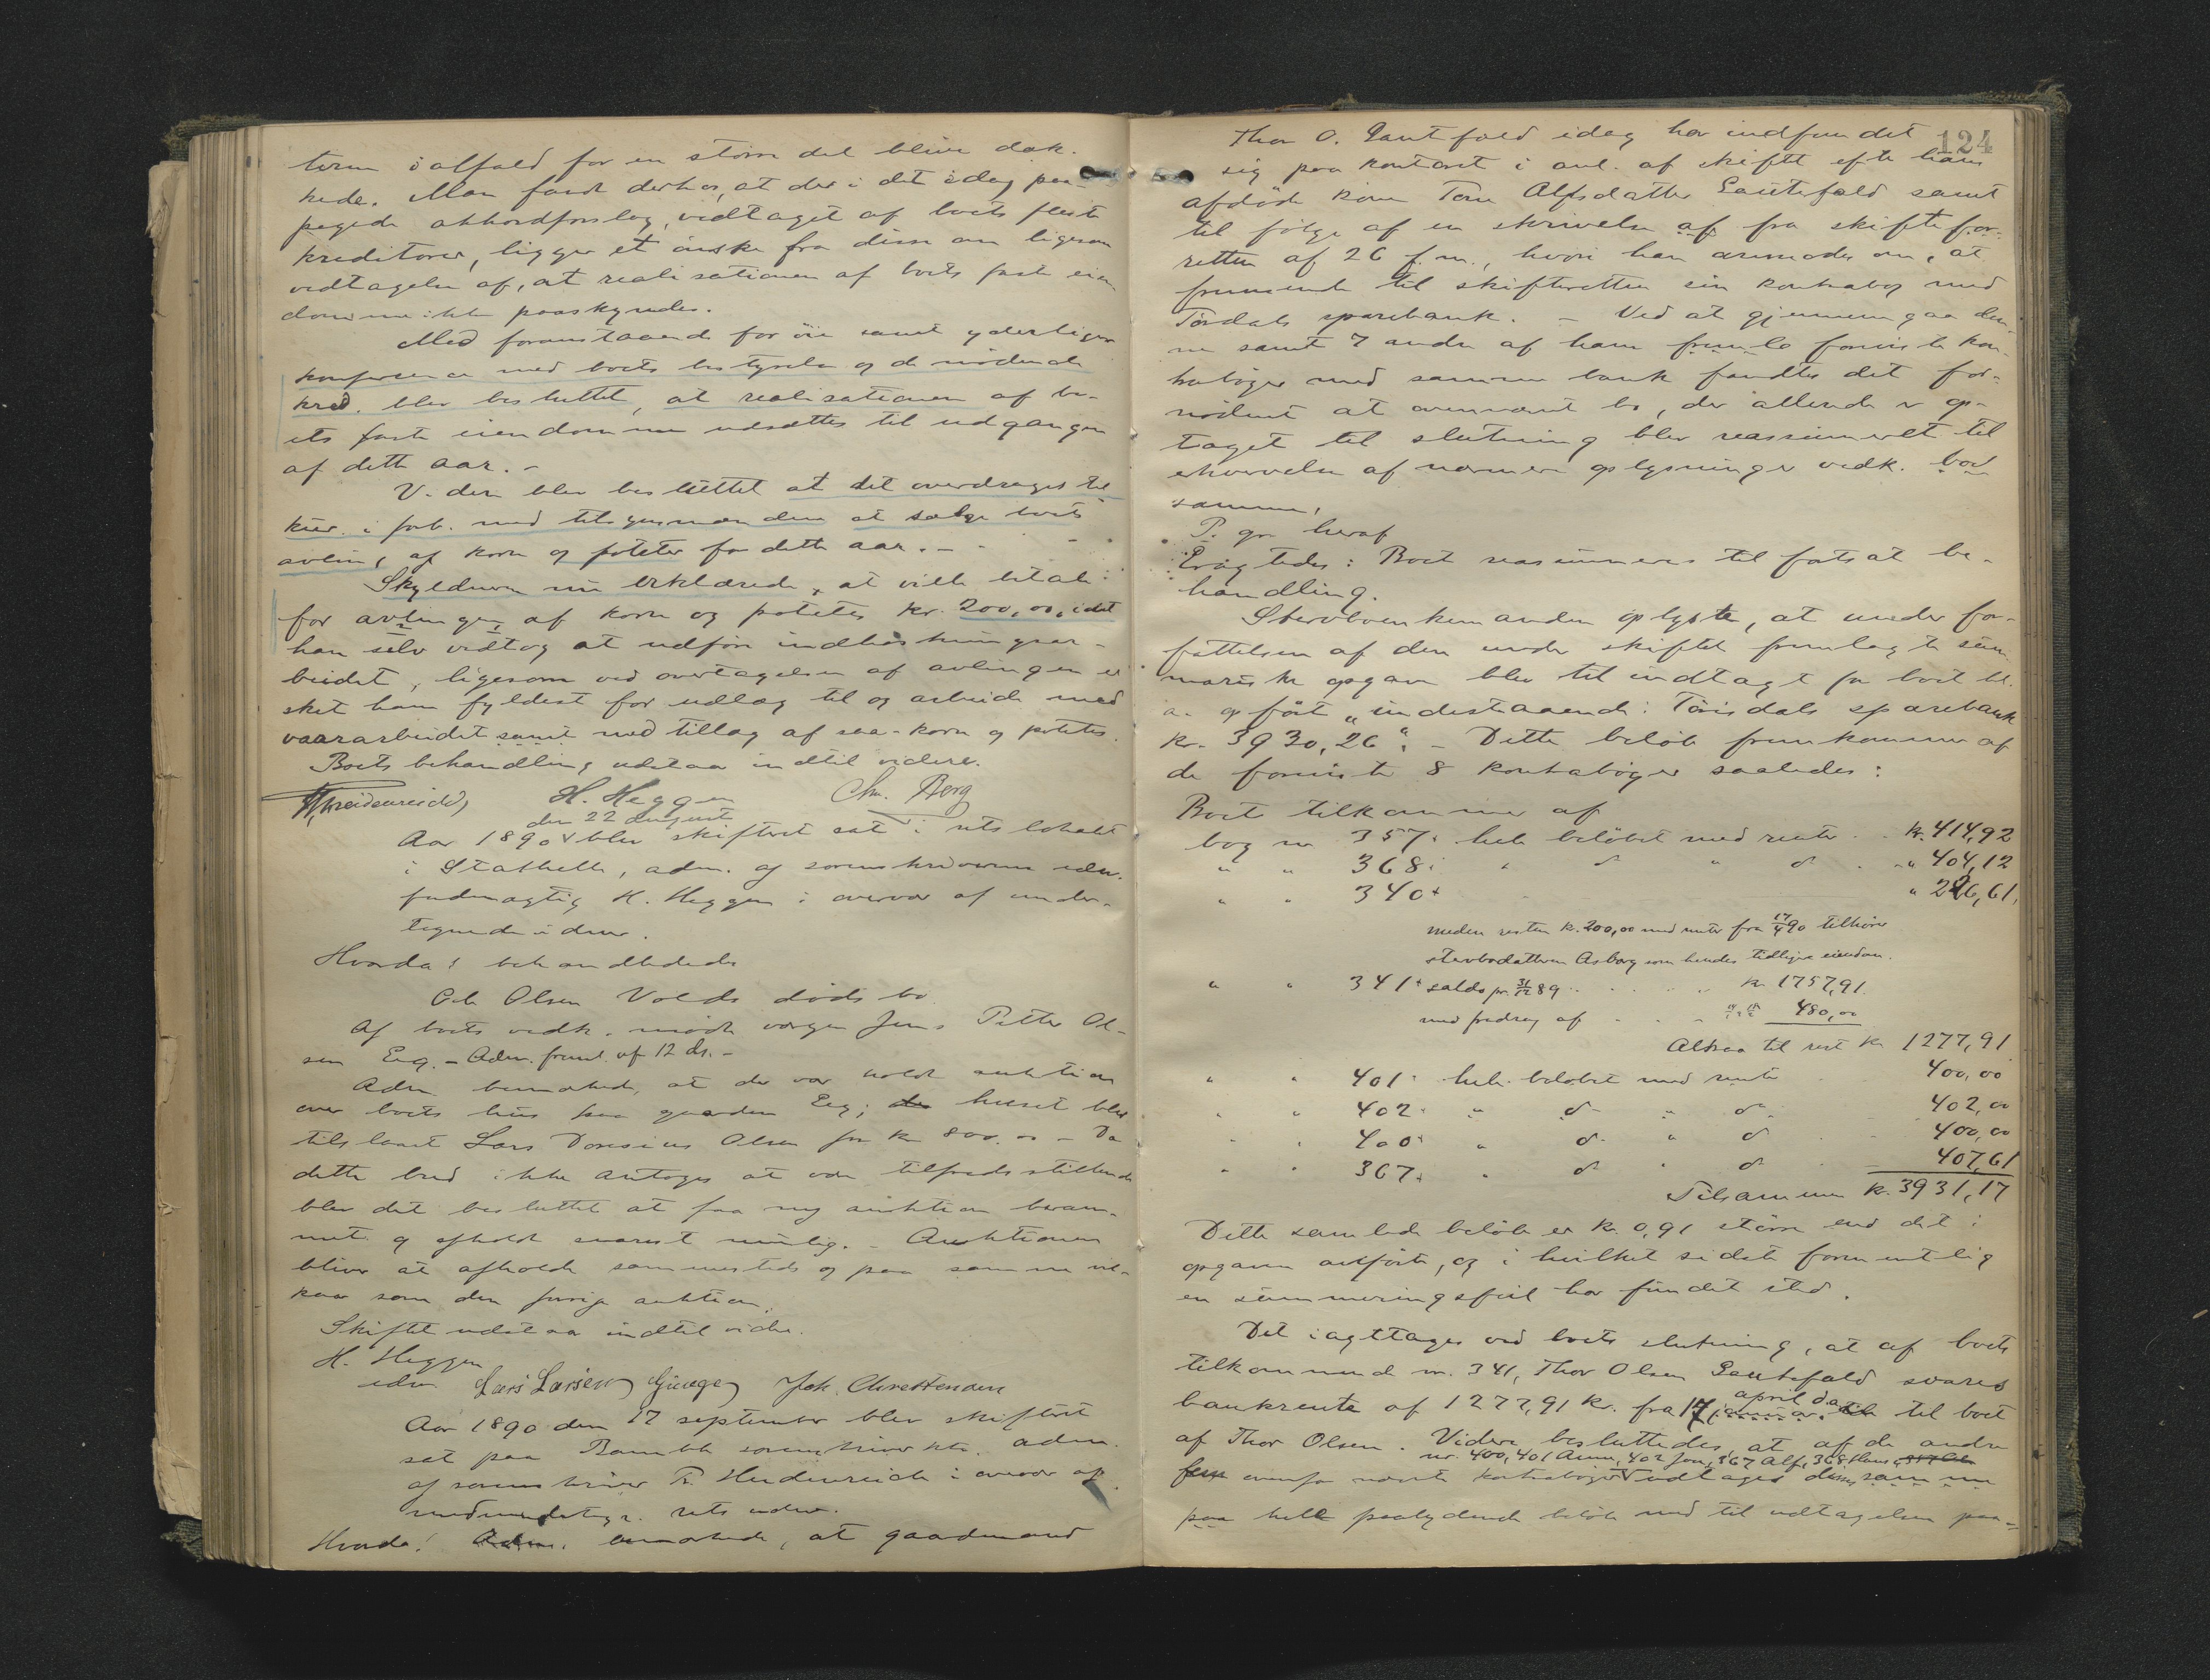 terne i alfald for en større del blive dæk-
kede. Man fandt derhos, at der i det idag paa-
pegede akkordforslag, vedtaget af boets fleste
kreditorer, ligger et ønske fra disse om ligesom
vedtagelse af, at realisationen af boets faste eien-
domme ikke paaskyndes.
Med foranstaaende for øie samt yderligere
konference med boets bestyrelse og de mødende
kred. blev besluttet, at realisationen af bo-
ets faste eiendomme udsættes til udgangen
af dette aar. -
Videre blev besluttet at det overdrages til
kur. i forb. med tilsynsmændene at sælge boets
avling af korn og poteter for dette aar. -
Skyldneren nu erklærede, at ville betale
for avlingen af korn og poteter kr. 200,00, idet
han selv vedtog at udføre indhøstningsar-
beidet, ligesom ved overtagelsen af avlingen er
sket ham fyldest for udlæg til og arbeide med
vaararbeidet samt med tillæg af saa-korn og poteter.
Boets behandling udstaar indtil videre.
Heidenreich H. Heggen Chr. Berg
den 22 august
Aar 1890 blev skifteret sat i rets lokalet
i Stathelle, adm. af sorenskriverens edsv.
fuldmægtig H. Heggen i overvær af under-
tegnede vidner.
Hvorda! behandledes
Ole Olsen Volds dødsbo
Af boets vedk. mødte værgen Jens Petter Ol-
sen Eeg. - Adm. freml. af 12 ds. -
Adm bemærkede, at der var holdt auktion
over boets hus paa gaarden Eeg; huset blev
tilslaaet Lars Olsen for kr 800.00 - Da
dette bud ikke antages at være tilfredsstillende
blev det besluttet at faa ny auktion beram-
met og afholdt snarest mulig. - Auktionen
bliver at afholde sammesteds og paa samme vil-
kaar som den forrige auktion.
Skiftet udstaar indtil videre.
H. Heggen
edsv Lars Larsen Joh. Christensen
Aar 1890 den 17 september blev skifteret
sat paa Bamble sorenskriver ktr. adm.
af sorenskriver F. Heidenreich i overvær af
medundertegn. rets vidner.
Hvorda! Adm. bemærkede, at gaardmand
124
Thor O. Gautefald idag har indfundet
sig paa kontoret i anl. af skiftet efter hans
afdøde kone Tone Alfsdatter Gautefald samt
til følge af en skrivelse af fra skiftefor-
retten af 26 f.m., hvori han anmodes om, at
fremsende til skifteretten sin kontrabog med
Tørdals sparebank. - Ved at gjennemgaa den-
ne samt 7 andre af ham foreviste kon-
trabøger med samme bank fandtes det for-
nødent at ovennævnte bo, der allerede er op-
taget til slutning blev reassumeret til
erhvervelse af nærmere oplysninger vedk. boet
samme,
P. gr. heraf
Eragtedes: Boet reassumeres til fortsat be-
handling.
Stervboenkemanden oplyste, at under for-
fattelsen af den under skiftet fremlagte sum-
mariske opgave blev til indtægt for boet bl.
a. opført "indestaaende i Tørdals sparebank
kr. 3930,26". - Dette beløb fremkommer af
de foreviste 8 kontrabøger saaledes:
Boet tilkommer af
bog nr 357. hele beløbet med renter .. kr. 414,92
" " 368. " do " do .. " 404,12
" " 340. " 226,61,
meden resten kr. 200,00 med renter fra 17/4 90 tilhører
stervbodatteren Asborg som hendes tidligere eiendom.
" " 341. saldo pr. 31/12 89 .. kr 1757,91.
med fradrag af 480,00
Altsaa til rest kr 1277,91
" " 401. hele beløbet med rente 400,00
" " 402. " do " do 402,00
" " 400. " do " do 400,00
" " 367. " do " do 407,61
Tilsammen kr. 3931,17
Dette samlede beløb er kr. 0,91 større end det i
opgaven anførte, og i hvilket sidste formentlig
en summeringsfeil har fundet sted.
Det iagttages ved boets slutning, at af boets
tilkommende nr. 341, Thor Olsen Gautefald svares
april d.a.
bankrente af 1277,91 kr. fra 17 januar til boet
af Thor Olsen. Videre besluttedes, at af de andre
nr. 400, 401 Anne, 402 Jon, 367 Alf, 368 Hans,
fem ovenfor nævnte kontrabøger udtages disse som nu
paa hele paalydende beløb med til udtagelsen paa-